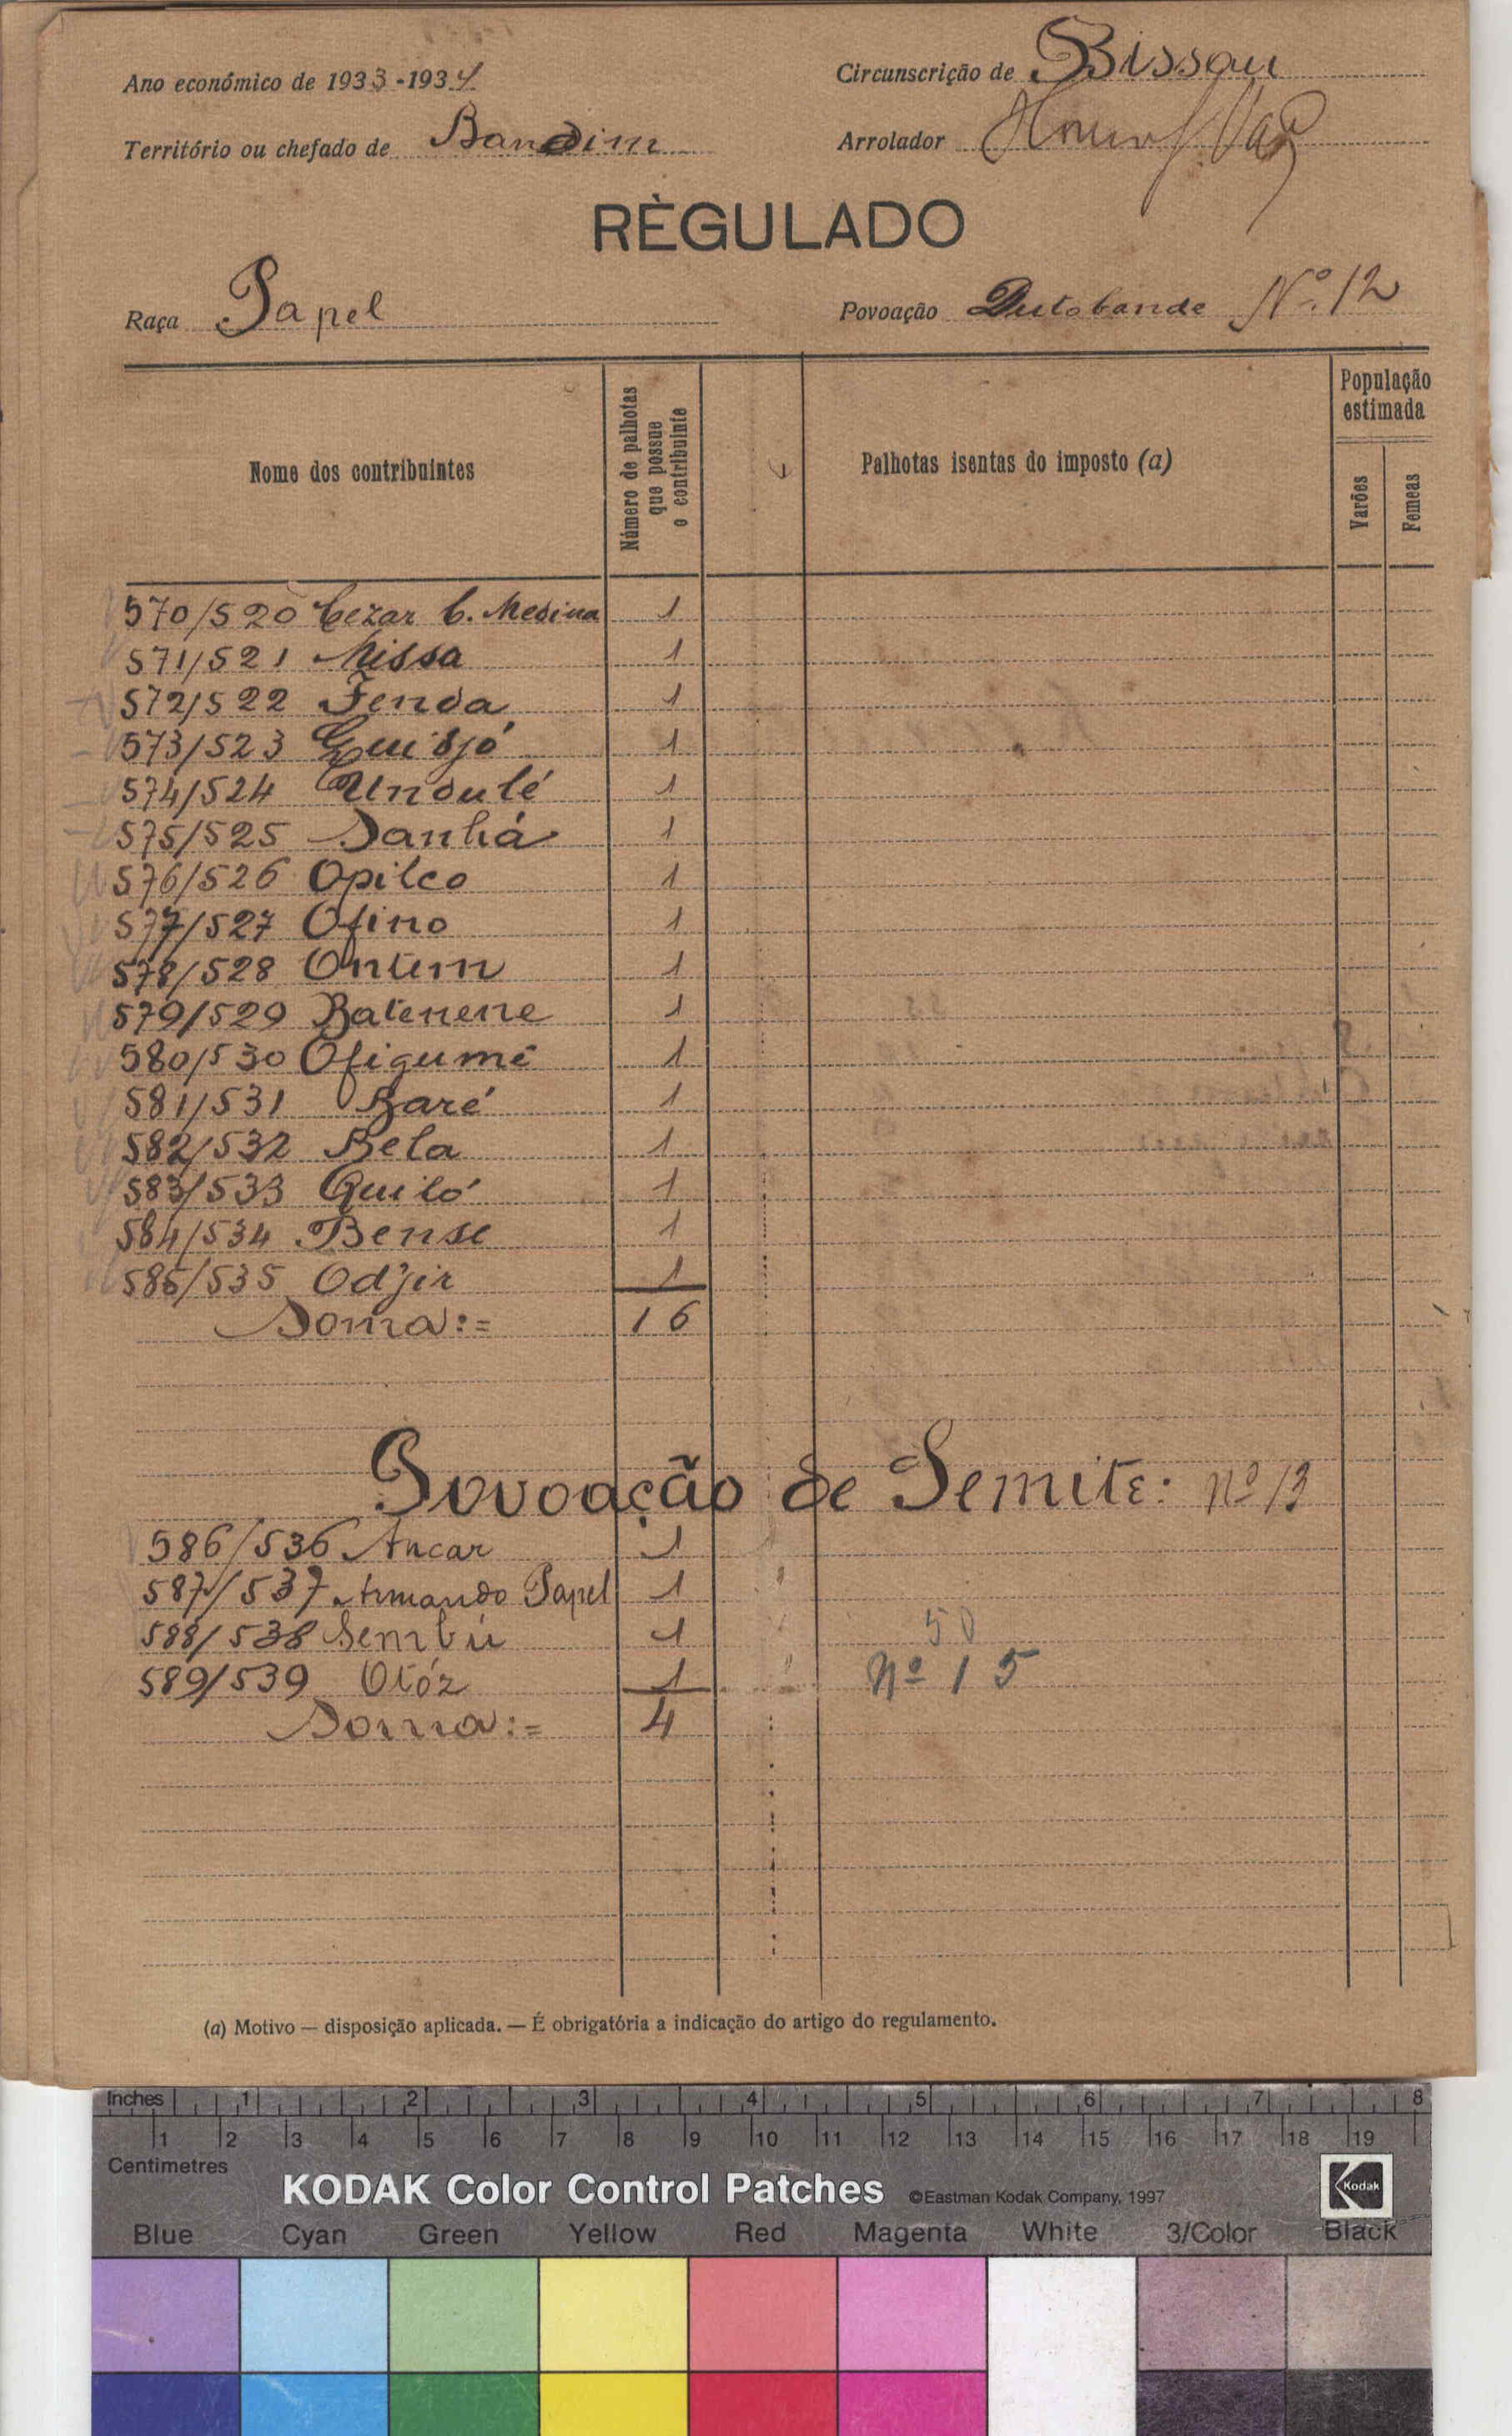 Ano económico de 1933-1934
Circunscrição de Bissau
Território ou chefado de Bandim
Arrolador
RÈGULADO
Raça Papel
Povoação Dutobande Nº. 12
Nome dos contribuintes
Número de palhotas que possue o contribuinte
Palhotas isentas do imposto (a)
População estimada
Varões
Femeas
570/520 Cezar C. Medina 1
571/521 Missa 1
572/522 Fenda 1
573/523 1
574/524 Undulé 1
575/525 Sanhá 1
576/526 Opilco 1
577/527 Ofino 1
578/528 Ontim 1
579/529 Batenene 1
580/530 Ofigumê 1
581/531 Baré 1
582/532 Bela 1
583/533 Quiló 1
584/534 Bense 1
585/535 Odjir 1
Soma:= 16
Povoação de Semite: nº 13
586/536 Ancar 1
587/537 Armando Papel 1
588/538 Sembú 1
50
589/539 Otóz 1
nº 15
Soma:= 4
(a) Motivo — disposição aplicada. — É obrigatória a indicação do artigo do regulamento.
Inches 1 2 3 4 5 6 7 8
1 2 3 4 5 6 7 8 9 10 11 12 13 14 15 16 17 18 19
Centimetres
KODAK Color Control Patches ©Eastman Kodak Company, 1997 Kodak
Blue Cyan Green Yellow Red Magenta White 3/Color Black